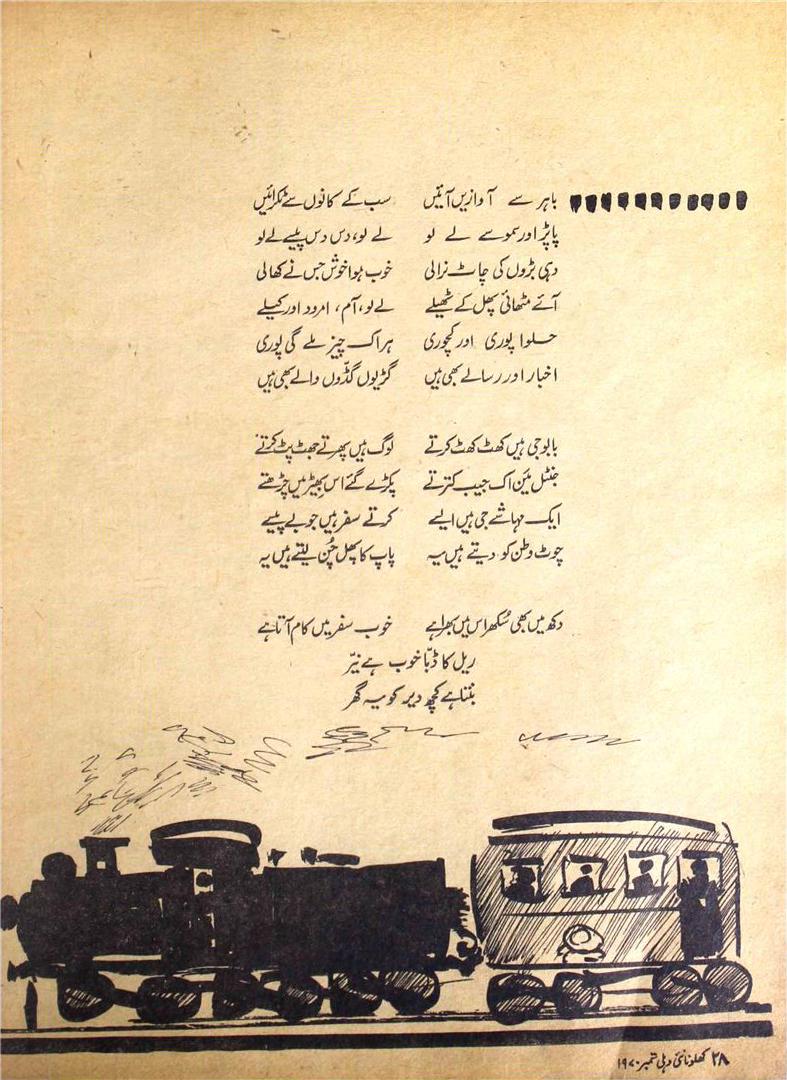 باہر سے آوازیں آئیں سب کے کانوں سے ٹکرائیں
پاپڑ اور سموسے لے لو لے لو، دس دس پیسے لے لو
دہی بڑوں کی چاٹ نرالی خوب ہوا خوش جس نے کھالی
آئے مٹھائی پھل کے ٹھیلے لے لو، آم، امرود اور کیلے
حلوا پوری اور کچوری ہر اک چیز ملے گی پوری
اخبار اور رسالے بھی ہیں گڑیوں گڈّوں والے بھی ہیں
بابو جی ہیں کھٹ کھٹ کرتے لوگ ہیں پھرتے جھٹ پٹ کرتے
جنٹل مَین اک جیب کترتے پکڑے گئے اس بھیڑ میں چڑھتے
ایک مہاشے جی ہیں ایسے کرتے سفر ہیں جو بے پیسے
چوٹ وطن کو دیتے ہیں یہ پاپ کا پھل چُن لیتے ہیں یہ
دکھ میں بھی سُکھ اس میں بھرا ہے خوب سفر میں کام آتا ہے
ریل کا ڈبّا خوب ہے نیّر
بنتا ہے کچھ دیر کو یہ گھر
۲۸ کھلونا نئی دہلی ستمبر ۱۹۷۰